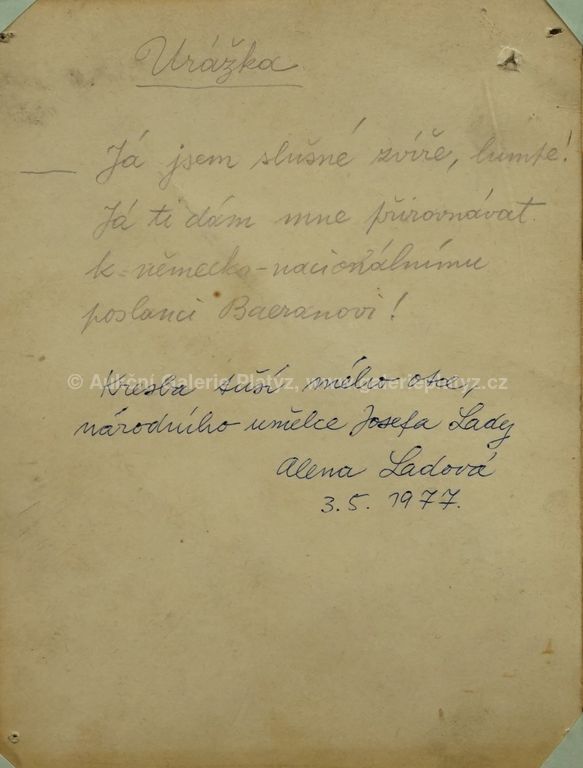 Urážka
— Já jsem slušné zvíře, lumpe!
Já ti dám mne přirovnávat
k německo-nacionálnímu
poslanci Baeranovi!
© Aukční Galerie Platýz, www.galerieplatyz.cz
Kresba tuší mého otce,
národního umělce Josefa Lady
Alena Ladová
3.5. 1977.